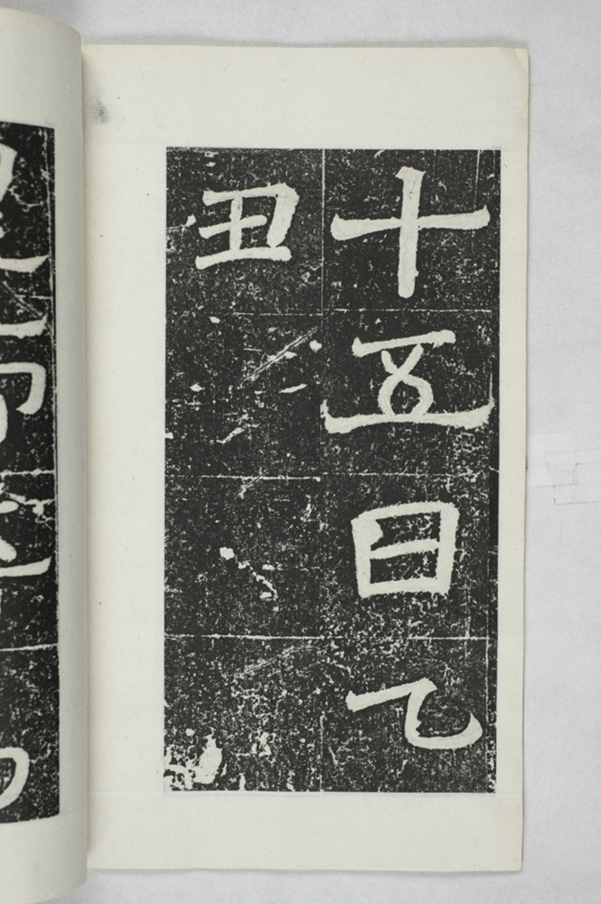 十五日乙
丑